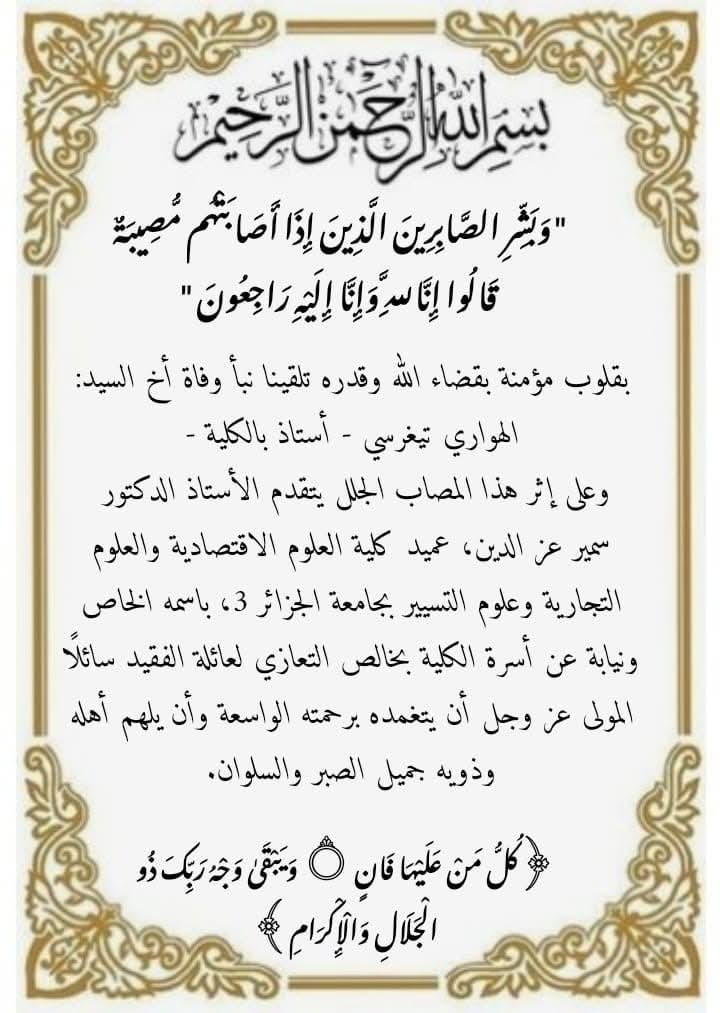 بسم الله الرحمن الرحيم
"وَبَشِّرِ الصَّابِرِينَ الَّذِينَ إِذَا أَصَابَتْهُم مُّصِيبَةٌ
قَالُوا إِنَّا لِلَّهِ وَإِنَّا إِلَيْهِ رَاجِعُونَ"
بقلوب مؤمنة بقضاء الله وقدره تلقينا نبأ وفاة أخ السيد:
الهواري تيغرسي - أستاذ بالكلية -
وعلى إثر هذا المصاب الجلل يتقدم الأستاذ الدكتور
سمير عز الدين، عميد كلية العلوم الاقتصادية والعلوم
التجارية وعلوم التسيير بجامعة الجزائر 3، باسمه الخاص
ونيابة عن أسرة الكلية بخالص التعازي لعائلة الفقيد سائلًا
المولى عز وجل أن يتغمده برحمته الواسعة وأن يلهم أهله
وذويه جميل الصبر والسلوان.
﴿كُلُّ مَنْ عَلَيْهَا فَانٍ ۝ وَيَبْقَىٰ وَجْهُ رَبِّكَ ذُو
الْجَلَالِ وَالْإِكْرَامِ﴾